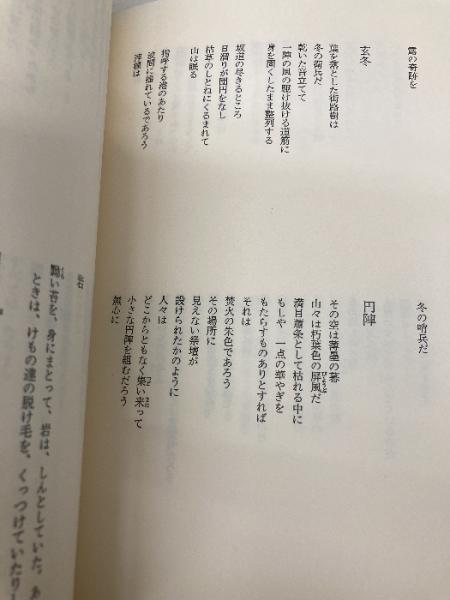 霑の奇跡を
玄冬
葉を落とした街路樹は
冬の哨兵だ
乾いた音立てて
一陣の風の駆け抜ける道筋に
身を固くしたまま整列する
坂道の尽きるところ
日溜りが団円をなし
枯草のしとねにくるまれて
山は眠る
指呼する港のあたり
波間に揺れているであろう
浮標は
冬の哨兵だ
円陣
その空は薄墨の幕
山々は朽葉色の屏風だ
びょうぶ
満目蕭条として枯れる中に
もしや　一点の華やぎを
もたらすものありとすれば
それは
焚火の朱色であろう
その場所に
見えない祭壇が
設けられたかのように
人々は
どこからともなく集い来って
小さな円陣を組むだろう
無心に
岩
い苔を、身にまとって、岩は、しんとしていた。あ
ときは、けもの達の脱け毛を、くっつけていたりし